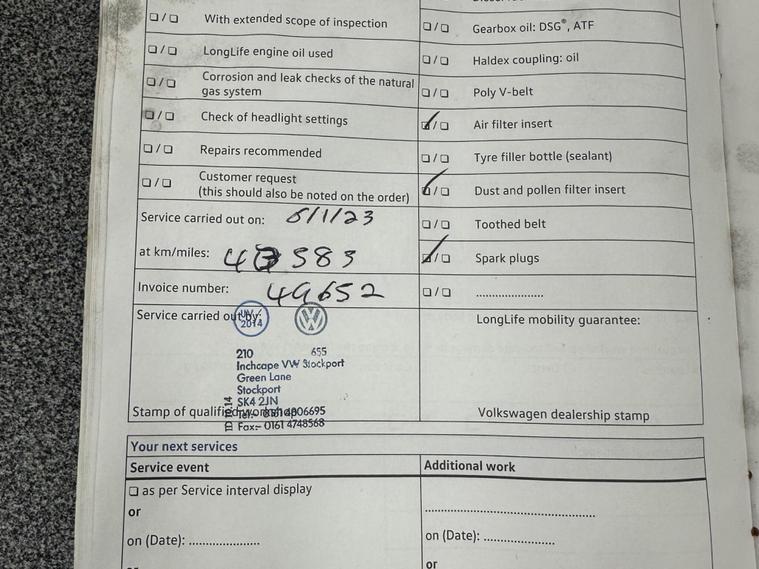 With extended scope of inspection
Gearbox oil: DSG®, ATF
LongLife engine oil used
Haldex coupling: oil
Corrosion and leak checks of the natural
gas system
Poly V-belt
Check of headlight settings
Air filter insert
Repairs recommended
Tyre filler bottle (sealant)
Customer request
(this should also be noted on the order)
Dust and pollen filter insert
Service carried out on:
Toothed belt
at km/miles:
Spark plugs
Invoice number: 49652
Service carried out by:
LongLife mobility guarantee:
2014
210 655
Inchcape VW Stockport
Green Lane
Stockport
SK4 2JN
Stamp of qualified workshop
Fax:- 0161 4748568
Volkswagen dealership stamp
Your next services
Service event
Additional work
as per Service interval display
or
on (Date): ....................
on (Date): ....................
or